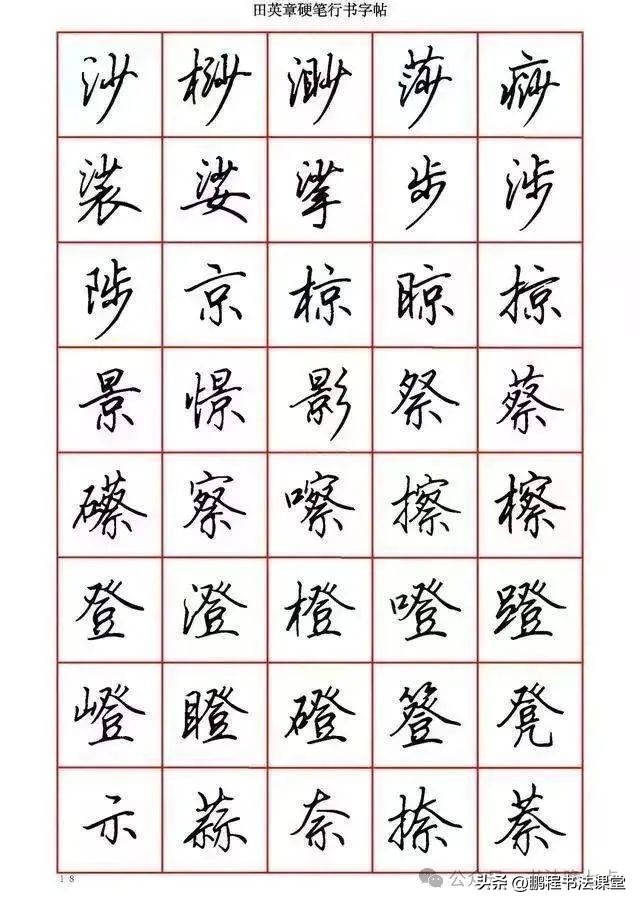 田英章硬笔行书字帖
沙 桫 渺 莎 痧
裟 娑 挲 步 涉
陟 京 椋 晾 掠
景 憬 影 祭 蔡
礤 察 嚓 擦 檫
登 澄 橙 噔 蹬
嶝 瞪 磴 簦 凳
示 蒜 奈 捺 萘
18
头条 @鹏程书法课堂